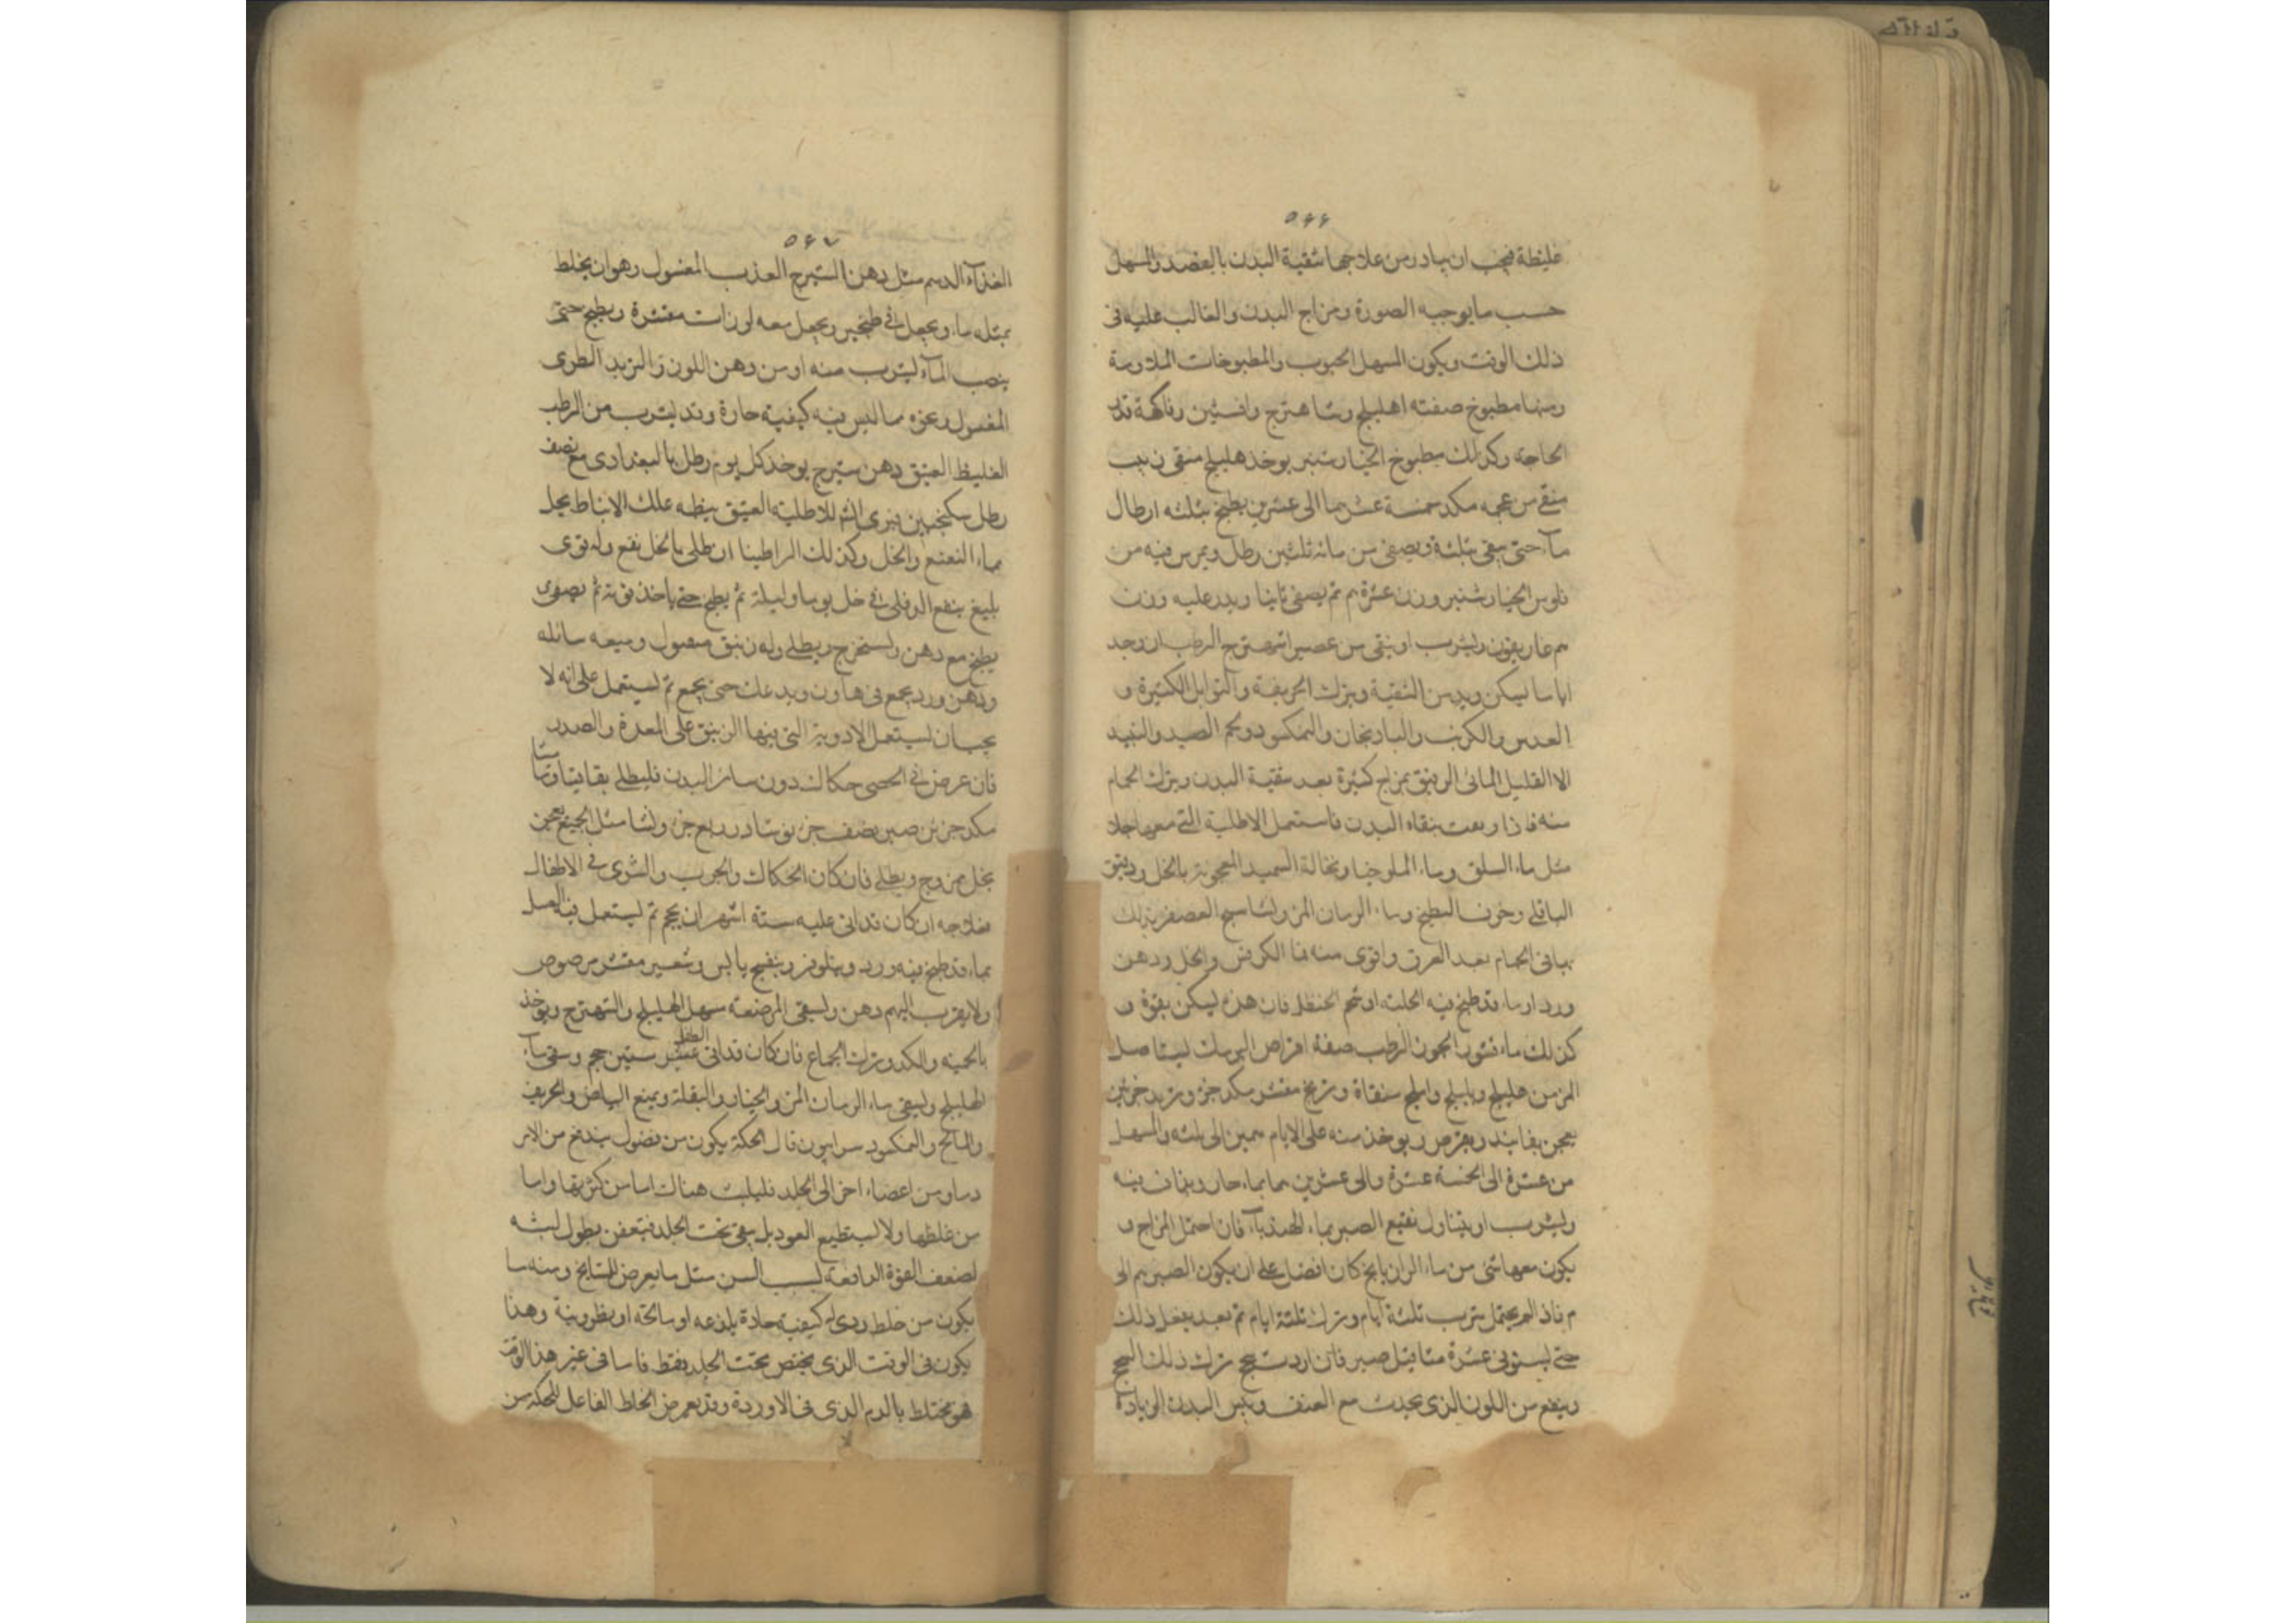 ٥٦٦
غليظة فيجب ان يبادر من علاجها بتنقية البدن بالفصد والمسهل
حسب ما يوجبه الصورة ومزاج البدن والغالب عليه فى
ذلك الوقت ويكون المسهل الحبوب والمطبوخات الملاومة
ومنها مطبوخ صفته اهليلج وشاهترج وافسنتين وفاكهة قدر
الحاجة وكذلك مطبوخ الخيارشنبر يوخذ هليلج منقى زبيب
منقى من عجمه مكد خمسة عشر الى عشرين يطبخ بثلثه ارطال
مآء حتى يبقى ثلثة ويصفى من مائه ثلثين رطل ويمرس فيه من
فلوس الخيارشنبر وزن عشرة ثم يصفى ثانيا ويذر عليه وزن
غاريقون ويشرب او يبقى من عصير الشهترج الرطب ان وجد
اياما ليكن ويدمن التنقية ويترك الحريفة والتوابل الكثيرة و
العدس والكرنب والبادنجان والنمكسود ولحم الصيد والنبيذ
الا القليل المائى الرقيق بمزاج كثيرة بعد تنقية البدن ويترك الحمام
منه فاذا وبعت بنقاء البدن فاستعمل الاطلية التى معها جلاء
مثل ماء السلق وماء الملوخيا ونخالة السميد المعجونة بالخل ودقيق
الباقلى وخزف البطيخ وماء الرمان المز ولشاسج العصفر يدلك
بها فى الحمام بعد العرق واقوى منه ما الكرفس والخل ودهن
ورد او ماء قد طبخ فيه الحلبة او شحم الحنظل فان هذه ليكن بقوة و
كذلك ماء قشور الجوز الرطب صفة اقراص اليرمك ليستاصل
المزمن هليلج وبليلج واملج منقاة وبرنج مقشر مكد جزء وتربد جزئين
يعجن بفانيذ ويقرص ويوخذ منه على الايام همين الى ثلثه والمسهل
من عشرة الى الخمسة عشرة والى عشرين هما بماء حار ويداف فيه
ويشرب او يتناول نقيع الصبر بماء الهندبآء فان احتمل المزاج و
يكون معها شئ من ماء الرازيانج كان افضل على ان يكون الصبر الى
فاذا لم يحتمل شرب ثلثة ايام وترك ثلثة ايام ثم بعد يفعل ذلك
حتى يستوفى عشرة مثاقيل صبر فان اردت سحج ترك ذلك السحج
وينفع من اللون الذى يحدث مع العنف ويبس البدن
٥٦٧
الغذآء الدسم مثل دهن الشيرج العذب المغسول وهو ان يخلط
بمثله ماء ويجعل فى طنجير ويجعل معه لوزات مقشرة ويطبخ حتى
ينصب المآء ليشرب منه او من دهن اللوز والزبد الطرى
المغسول وغيره مما ليس فيه كيفية حارة وقد ليشرب من الرطب
الغليظ العتيق دهن شيرج يوخذ كل يوم رطل بالبغدادى مع نصف
رطل سكنجبين فيرى الاطلية العتيق علك الانباط يحل
بماء النعنع والخل وكذلك الراطينا ان طلى بالخل نفع وله قوى
بليغ ينقع الدفلى فى خل يوما وليلة ثم يطبخ حتى ياخذ قوته ثم يصفى
يطبخ مع دهن ويستخرج ويطلى وله زيبق مقتول وميعه سائله
ودهن ورد يجمع فى هاون ويدعك حتى يجمع ثم ليستعمل على انه لا
يجب ان ليستعمل الادوية التى فيها الزيبق على المعدة والصدر
فان عرض فى الخصى حكاك دون سائر البدن فليطلى بقاقيا وماميثا
مكد جزئن صبر نصف جز نوشادر ربع جز ولشا مثل الجميع يعجن
بخل ممزوج ويطلى فان كان الحكاك والجرب والشرى فى الاطفال
فعلاجه ان كان قد اتى عليه ستة اشهر ان يحجم ثم ليستعمل فيه الغسل
بماء قد طبخ فيه ورد ونيلوفر وبنفسج يابس وشعير مقشر مرضوض
ولا يقرب اليهم دهن وليسقى المرضعة مسهل الهليلج والشهترج ويوخذ
بالحمية والكد وترك الجماع فان كان قد اتى الطفل عشر ستين حجم وسقى مآء
الهليلج وليسقى ماء الرمان المز والخيار والبقلة ويمنع البياض والحريف
والمالح والنمكسود سرابيون قال الحكة يكون من فضول يندفع من الابر
دماو من اعضاء اخر الى الجلد فليلبث هناك اما من كثرتها واما
من غلظها ولا ليستطيع العود بل يبقى تحت الجلد فيتعفن بطول لبثه
لضعف القوة الدافعة لسبب السن مثل ما يعرض للمشايخ ومنه ما
يكون من خلط ردى له كيفية حادة يلذعه او مالحة او بظرونية وهذا
يكون فى الوقت الذى يحتقن تحت الجلد فقط فاما فى غير هذا الوقت
هو مختلط بالدم الذى فى الاوردة وقد يعرض الخلط الفاعل للحكة من